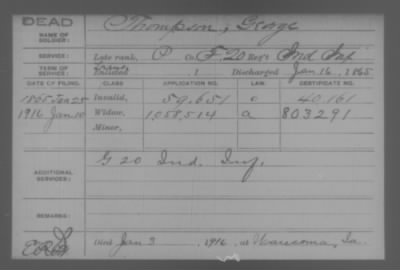 DEAD
NAME OF SOLDIER: Thompson, George
SERVICE: Late rank, P Co. F, 20 Reg't Ind Inf
TERM OF SERVICE: Enlisted , 1 Discharged Jan. 16, 1865
DATE OF FILING. CLASS APPLICATION NO. LAW. CERTIFICATE NO.
1865 Jan 25 Invalid, 59,651 o 40161
1916 Jan. 10 Widow, 1058,514 a 803291
Minor,
ADDITIONAL SERVICES: G 20 Ind. Inf.
REMARKS:
Died Jan 3, 1916, at Waucoma, Ia.